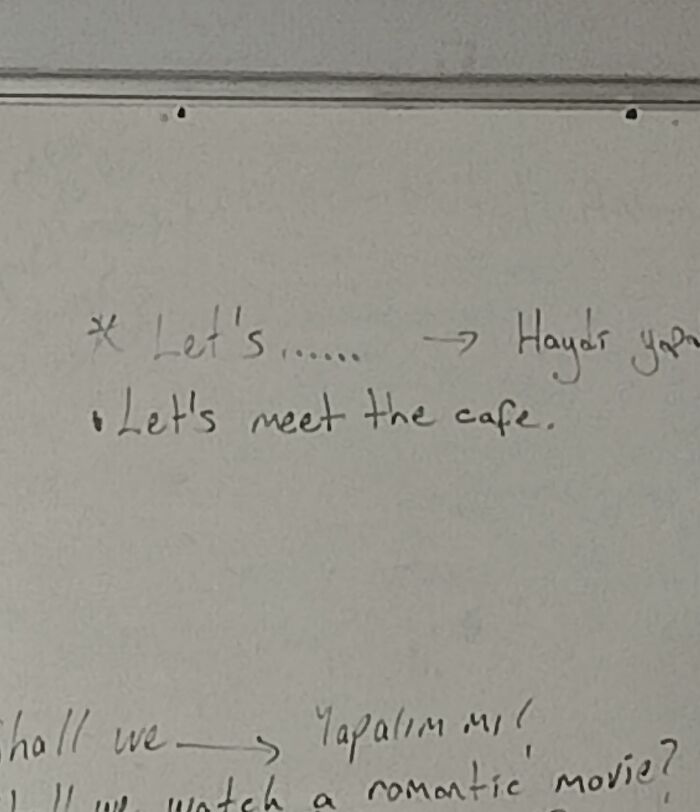 * Let's...... → Haydi
• Let's meet the cafe.
we → Yapalım mı?
we watch a romantic movie?